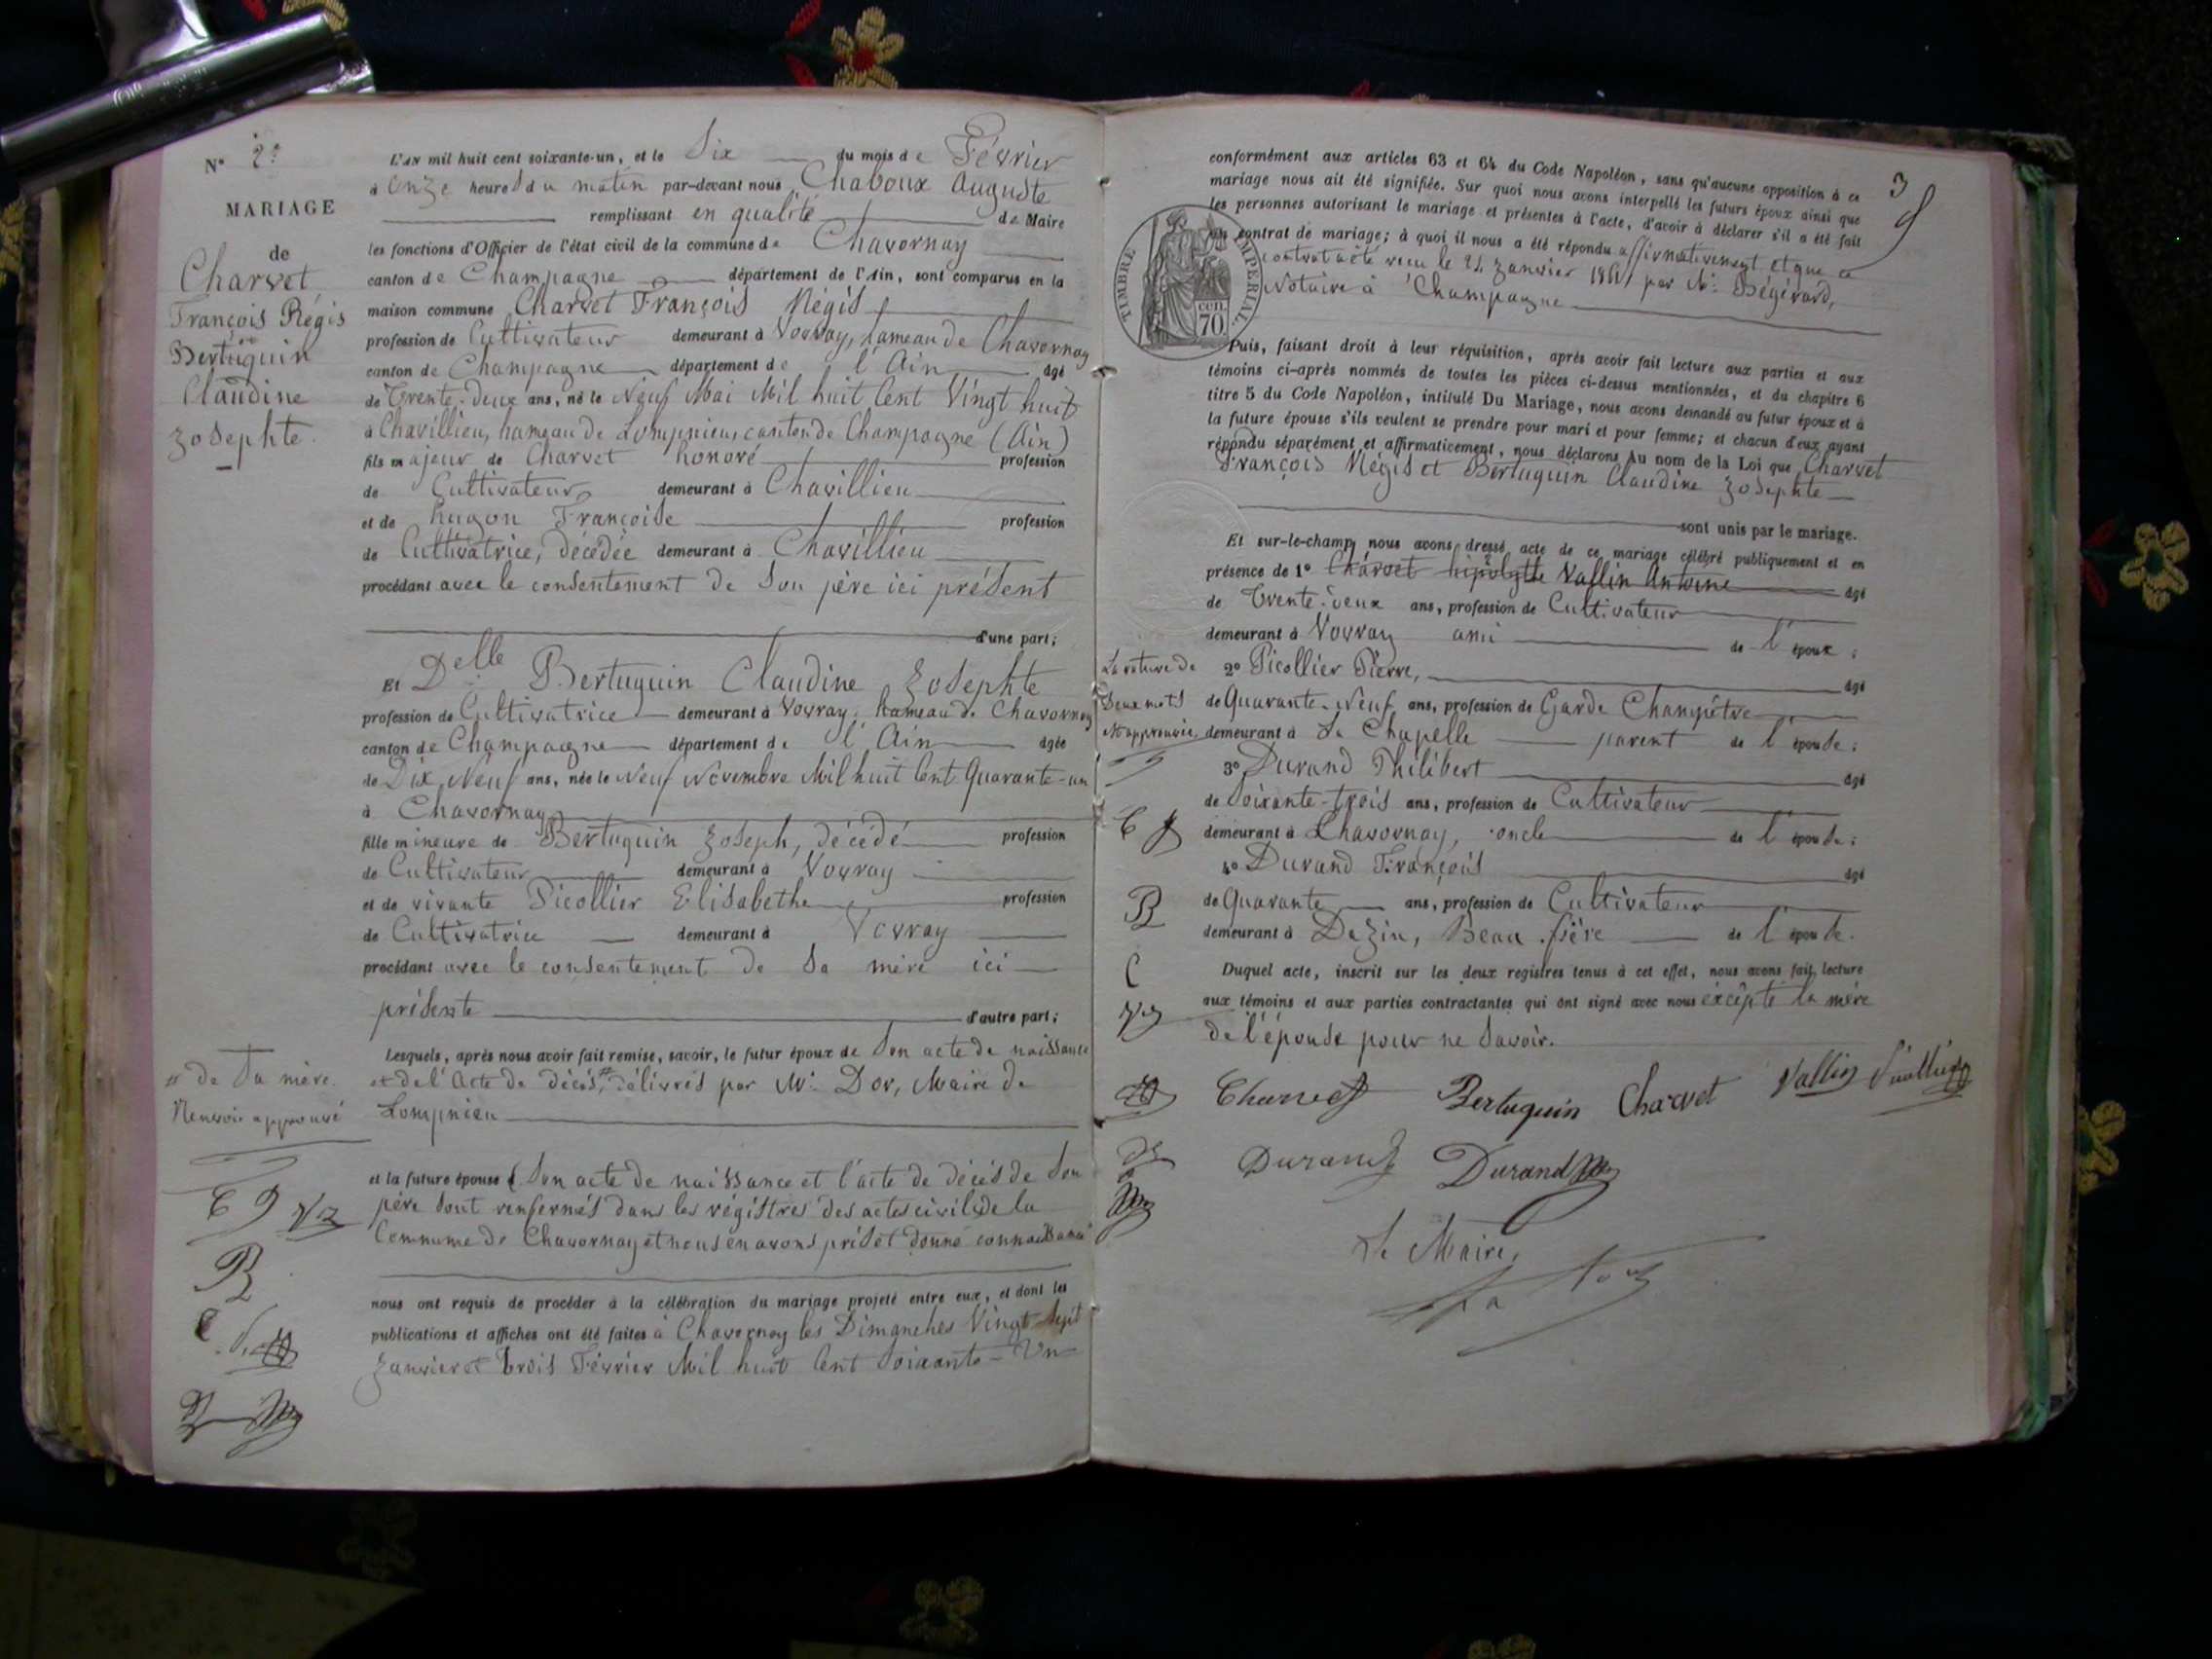 N° 2°
MARIAGE
de
Charvet
François Régis
et
Bertuquin
Claudine
Josephte.
L'AN mil huit cent soixante-un, et le Six du mois de Février
à Onze heures du matin par-devant nous Chaboux Auguste
remplissant en qualité de Maire
les fonctions d'Officier de l'état civil de la commune de Chavornay
canton de Champagne département de l'Ain, sont comparus en la
maison commune Charvet François Régis
profession de Cultivateur demeurant à Vovray, hameau de Chavornay
canton de Champagne département de l'Ain âgé
de Trente-deux ans, né le Neuf Mai Mil huit Cent Vingt huit
à Chavillieu, hameau de Lompnieu, canton de Champagne (Ain)
fils majeur de Charvet honoré profession
de Cultivateur demeurant à Chavillieu
et de hugon Françoise profession
de Cultivatrice, décédée demeurant à Chavillieu
procédant avec le consentement de son père ici présent
d'une part;
Et Delle Bertuquin Claudine Josephte
profession de Cultivatrice demeurant à Vovray, hameau de Chavornay
canton de Champagne département de l'Ain âgée
de Dix Neuf ans, née le Neuf Novembre Mil huit Cent Quarante-un
à Chavornay
fille mineure de Bertuquin Joseph, décédé profession
de Cultivateur demeurant à Vovray
et de vivante Picollier Elisabethe profession
de Cultivatrice demeurant à Vovray
procédant avec le consentement de sa mère ici
présente d'autre part;
Lesquels, après nous avoir fait remise, savoir, le futur époux de son acte de naissance
et de l'acte de décès # délivrés par Mr Dor, Maire de
Lompnieu
# de sa mère.
Renvoi approuvé
et la future épouse son acte de naissance et l'acte de décès de son
père sont renfermés dans les régistres des actes civils de la
Commune de Chavornay et nous en avons pris et donné connaissance
nous ont requis de procéder à la célébration du mariage projeté entre eux, et dont les
publications et affiches ont été faites à Chavornay les Dimanches Vingt Sept
Janvier et trois Février Mil huit Cent Soixante-Un
3
conformément aux articles 63 et 64 du Code Napoléon, sans qu'aucune opposition à ce
mariage nous ait été signifiée. Sur quoi nous avons interpellé les futurs époux ainsi que
les personnes autorisant le mariage et présentes à l'acte, d'avoir à déclarer s'il a été fait
un contrat de mariage; à quoi il nous a été répondu affirmativement et que ce
contrat a été reçu le 24 Janvier 1861 par Mr Bégérard,
Notaire à Champagne
TIMBRE IMPERIAL
70 cen.
Puis, faisant droit à leur réquisition, après avoir fait lecture aux parties et aux
témoins ci-après nommés de toutes les pièces ci-dessus mentionnées, et du chapitre 6
titre 5 du Code Napoléon, intitulé Du Mariage, nous avons demandé au futur époux et à
la future épouse s'ils veulent se prendre pour mari et pour femme; et chacun d'eux ayant
répondu séparément et affirmativement, nous déclarons Au nom de la Loi que Charvet
François Régis et Bertuquin Claudine Josephte
sont unis par le mariage.
Et sur-le-champ nous avons dressé acte de ce mariage célébré publiquement et en
présence de 1° Charvet hipolythe Vallin Antoine âgé
de Trente-deux ans, profession de Cultivateur
demeurant à Vovray ami de l'époux;
La rature de
deux mots
est approuvée
2° Picollier Pierre, âgé
de Quarante-Neuf ans, profession de Garde Champêtre
demeurant à La Chapelle parent de l'épouse;
3° Durand Philibert âgé
de Soixante-trois ans, profession de Cultivateur
demeurant à Chavornay, oncle de l'épouse;
4° Durand François âgé
de Quarante ans, profession de Cultivateur
demeurant à Dazin, Beau-frère de l'épouse.
Duquel acte, inscrit sur les deux registres tenus à cet effet, nous avons fait lecture
aux témoins et aux parties contractantes qui ont signé avec nous excepté la mère
de l'épouse pour ne savoir.
Charvet Bertuquin Charvet Vallin
Durand Durand
Le Maire,